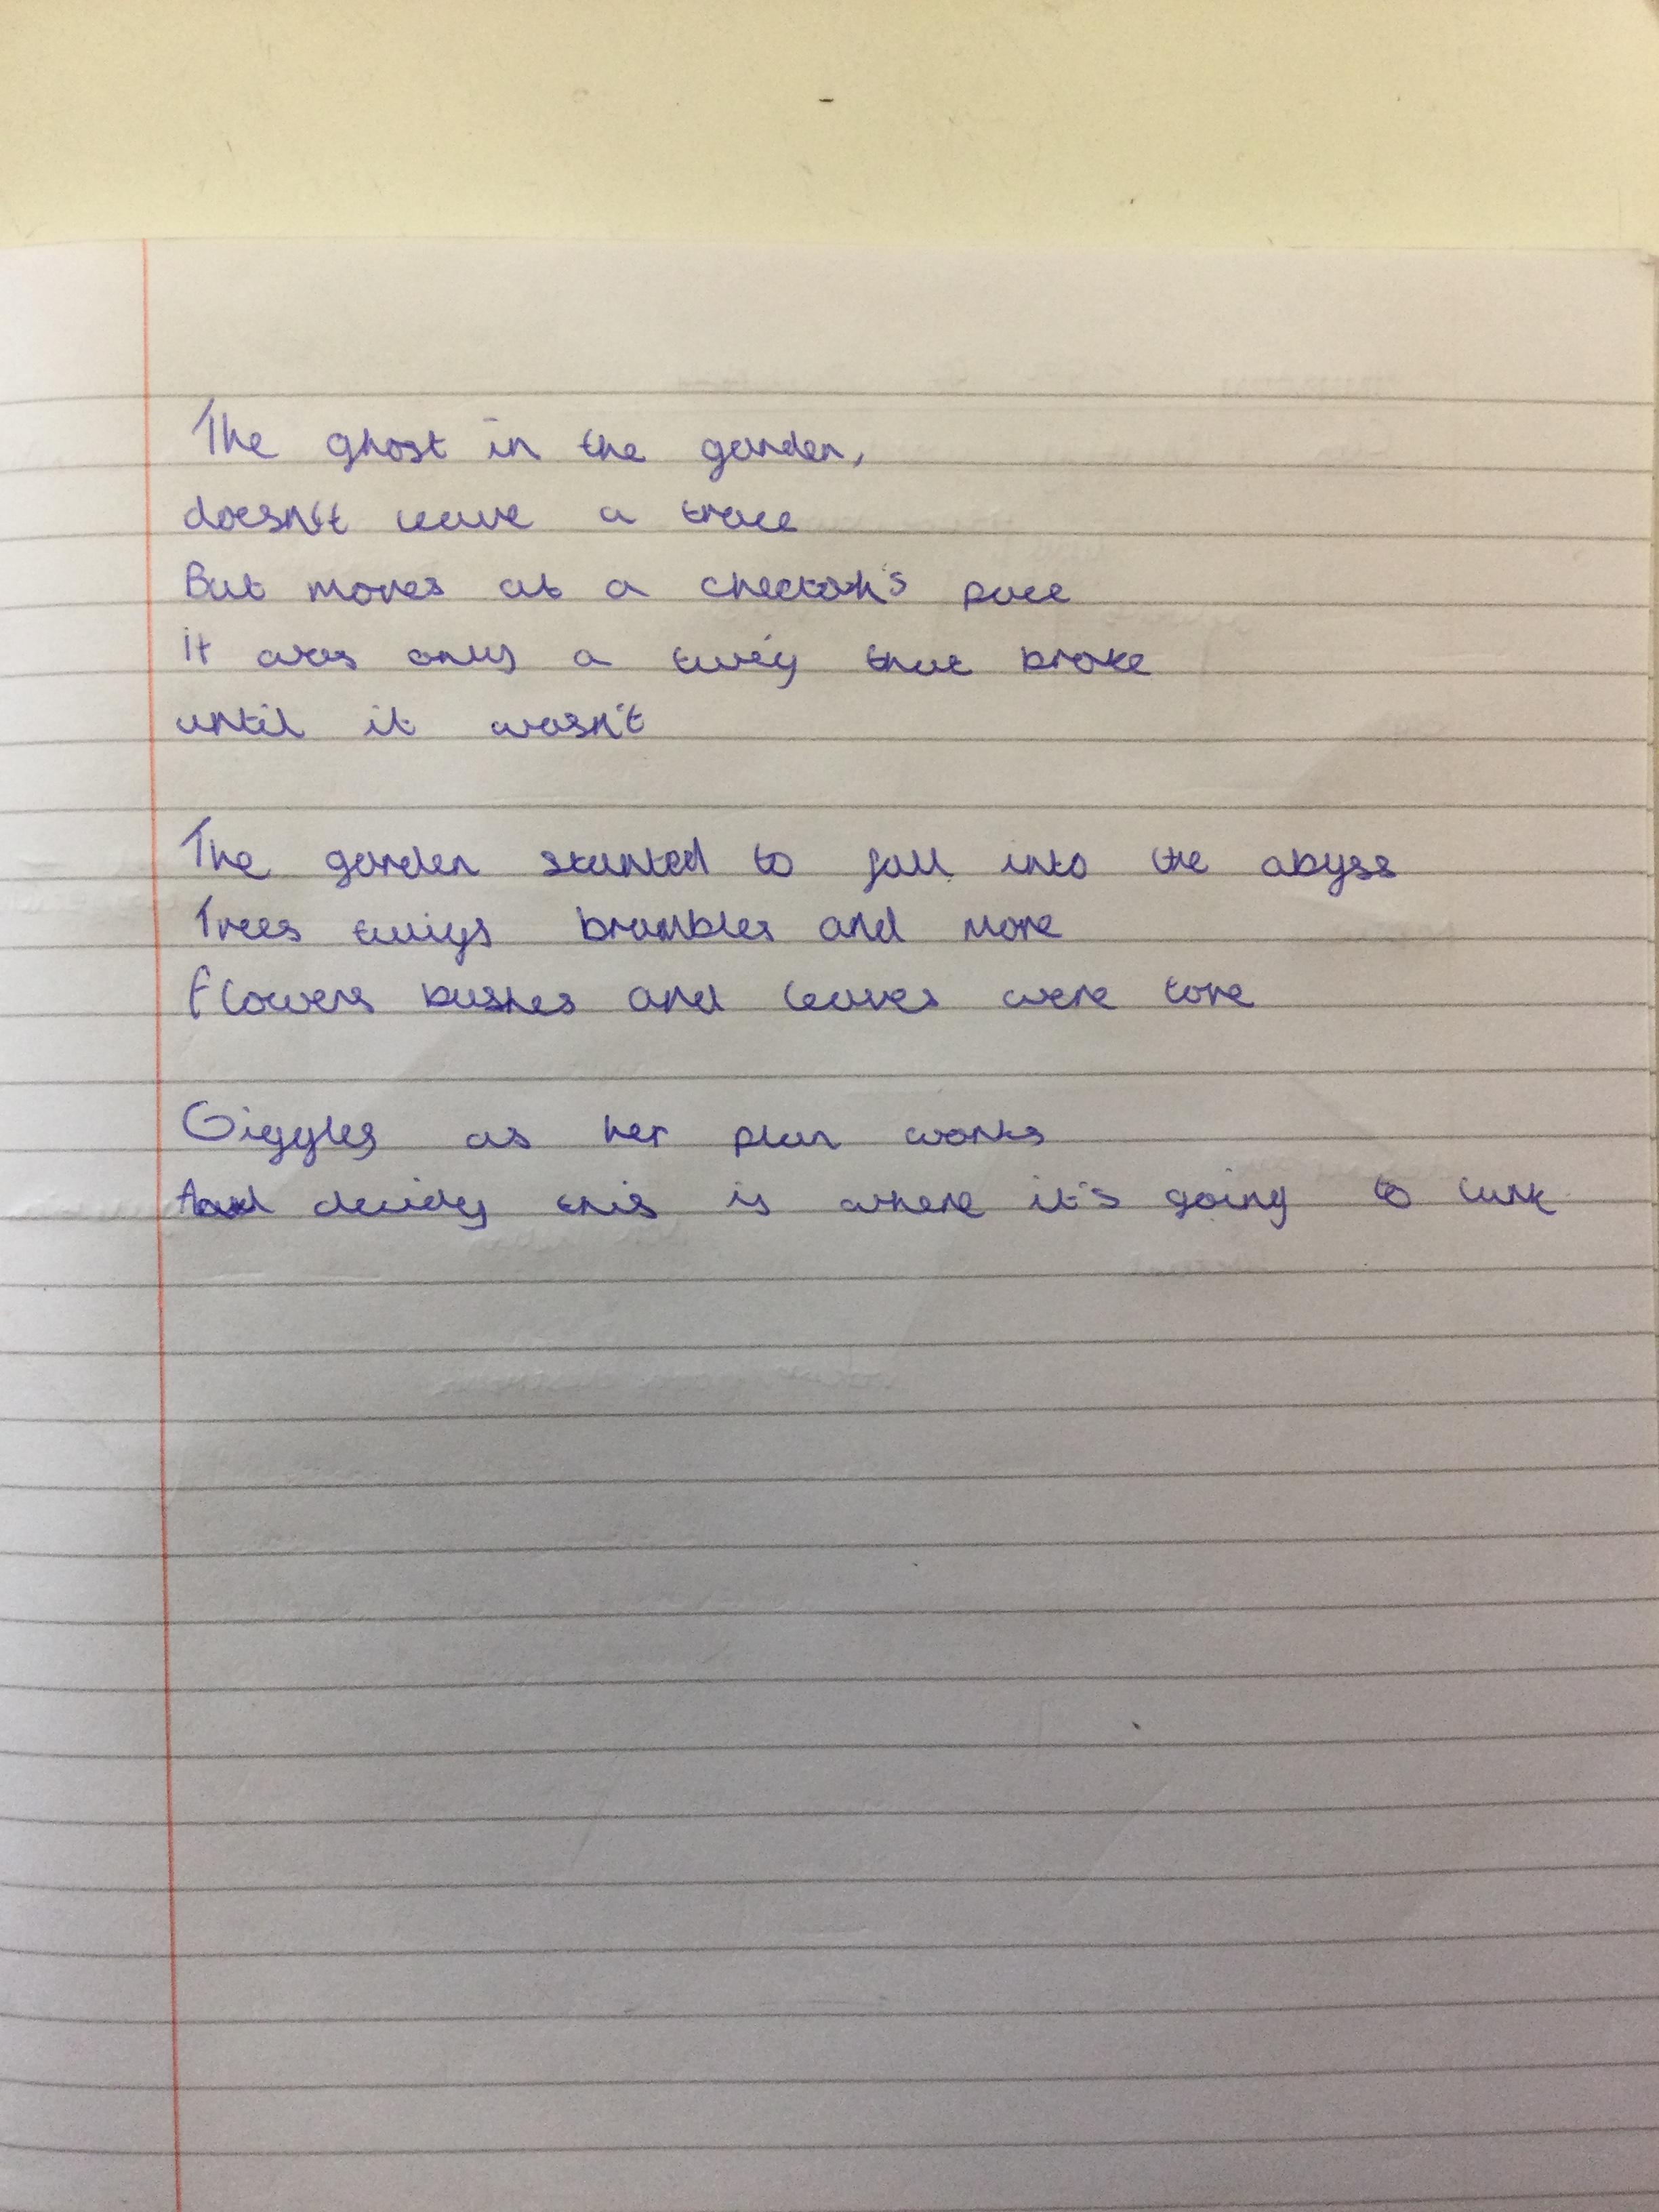 The ghost in the garden,
doesn't leave a trace
But moves at a cheetah's pace
it was only a twig that broke
until it wasn't
The garden started to fall into the abyss
Trees twigs brambles and more
Flowers bushes and leaves were tore
Giggles as her plan works
And decides this is where it's going to lurk